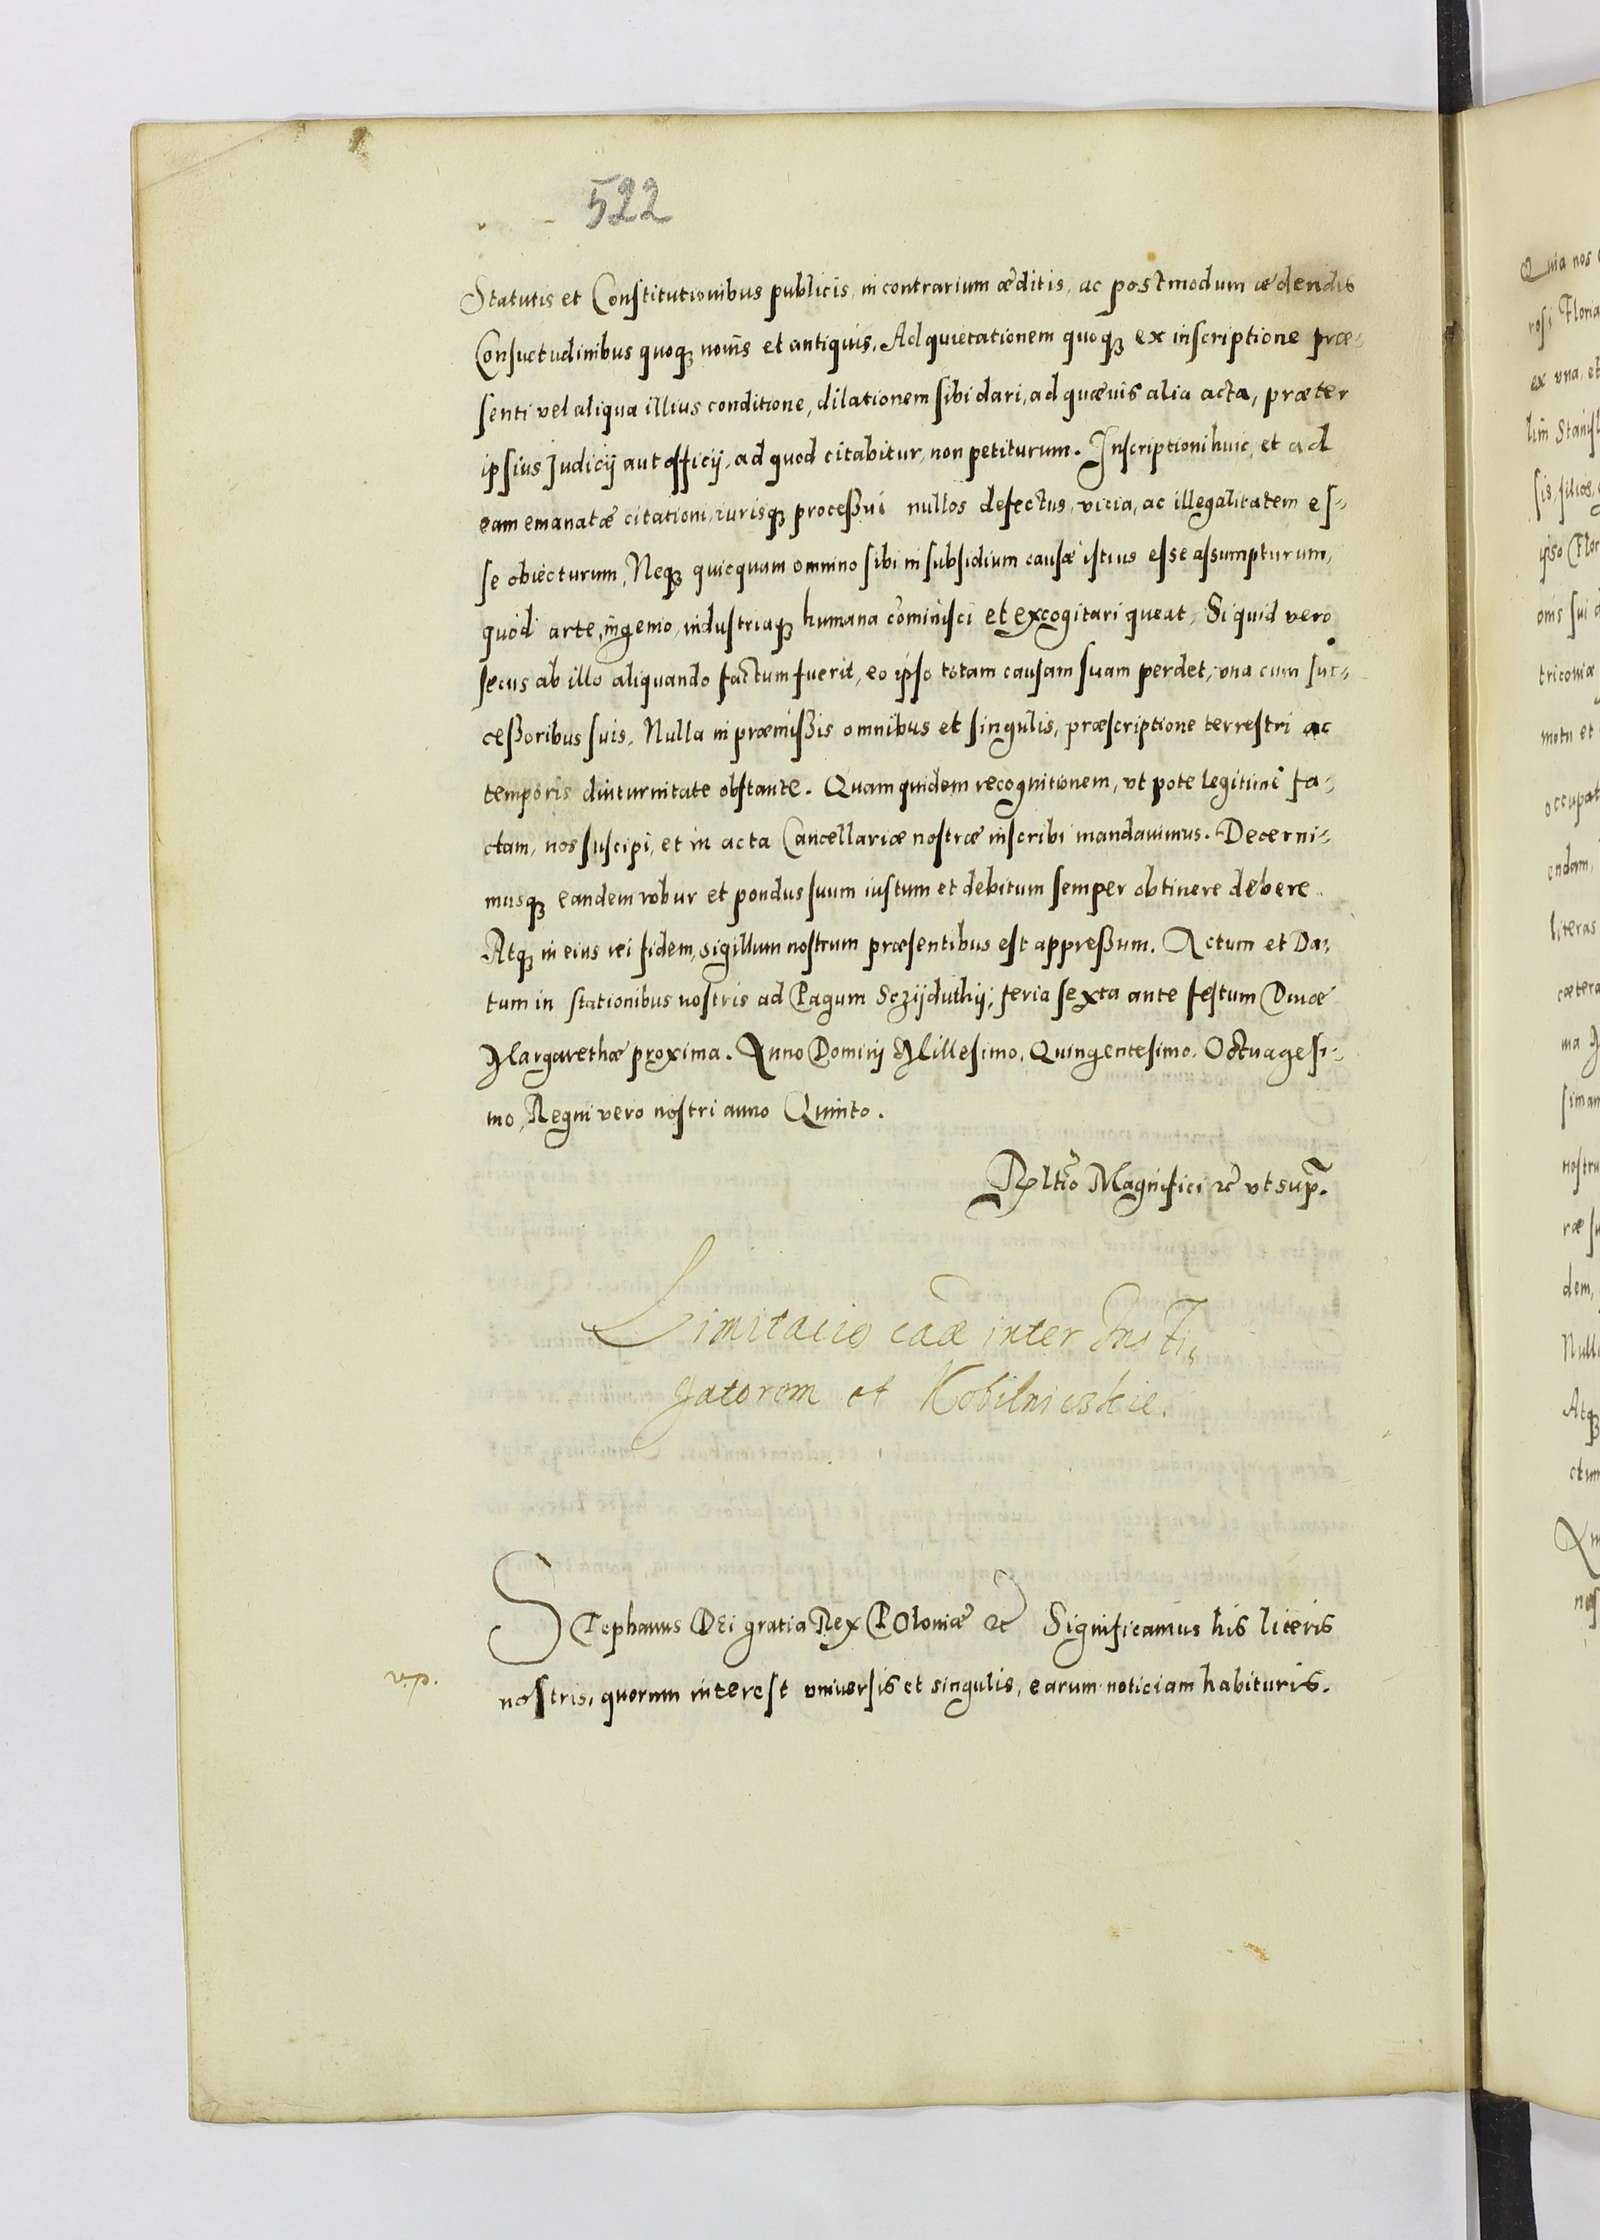 522
Statutis et Constitutionibus publicis, in contrarium æditis, ac postmodum ædendis
Consuetudinibus quoqꝫ nouis et antiquis. Ad quietationem quoqꝫ ex inscriptione præ-
senti vel aliqua illius conditione, dilationem sibi dari, ad quæuis alia acta, præter
ipsius Judicij aut officij, ad quod citabitur, non petiturum. Inscriptioni huic, et ad
eam emanatæ citationi, iurisqꝫ processui nullos defectus, vicia, ac illegalitatem es-
se obiecturum, Neqꝫ quicquam omnino sibi in subsidium causæ istius esse assumpturum,
quod arte, ingenio, industriaqꝫ humana cominisci et excogitari queat, Si quid vero
secus ab illo aliquando factum fuerit, eo ipso totam causam suam perdet, vna cum suc-
cessoribus suis. Nulla in præmissis omnibus et singulis, præscriptione terrestri ac
temporis diuturnitate obstante. Quam quidem recognitionem, vt pote legitime fa-
ctam, nos suscipi, et in acta Cancellariæ nostræ inscribi mandauimus. Decerni-
musqꝫ eandem robur et pondus suum iustum et debitum semper obtinere debere
Atqꝫ in eius rei fidem, sigillum nostrum præsentibus est appressum. Actum et Da-
tum in stationibus nostris ad Pagum Sczijduthij, feria sexta ante festum Diuæ
Margarethæ proxima. Anno Domini Millesimo, Quingentesimo. Octuagesi-
mo, Regni vero nostri anno Quinto.
Rltio Magnifici ꝛc vt sup̄.
Limitacio caæ inter Insti,
gatorem et Kobilnicskie.
Stephanus Dei gratia Rex Poloniæ ꝛc Significamus his literis
nostris, quorum interest vniuersis et singulis, earum noticiam habituris.